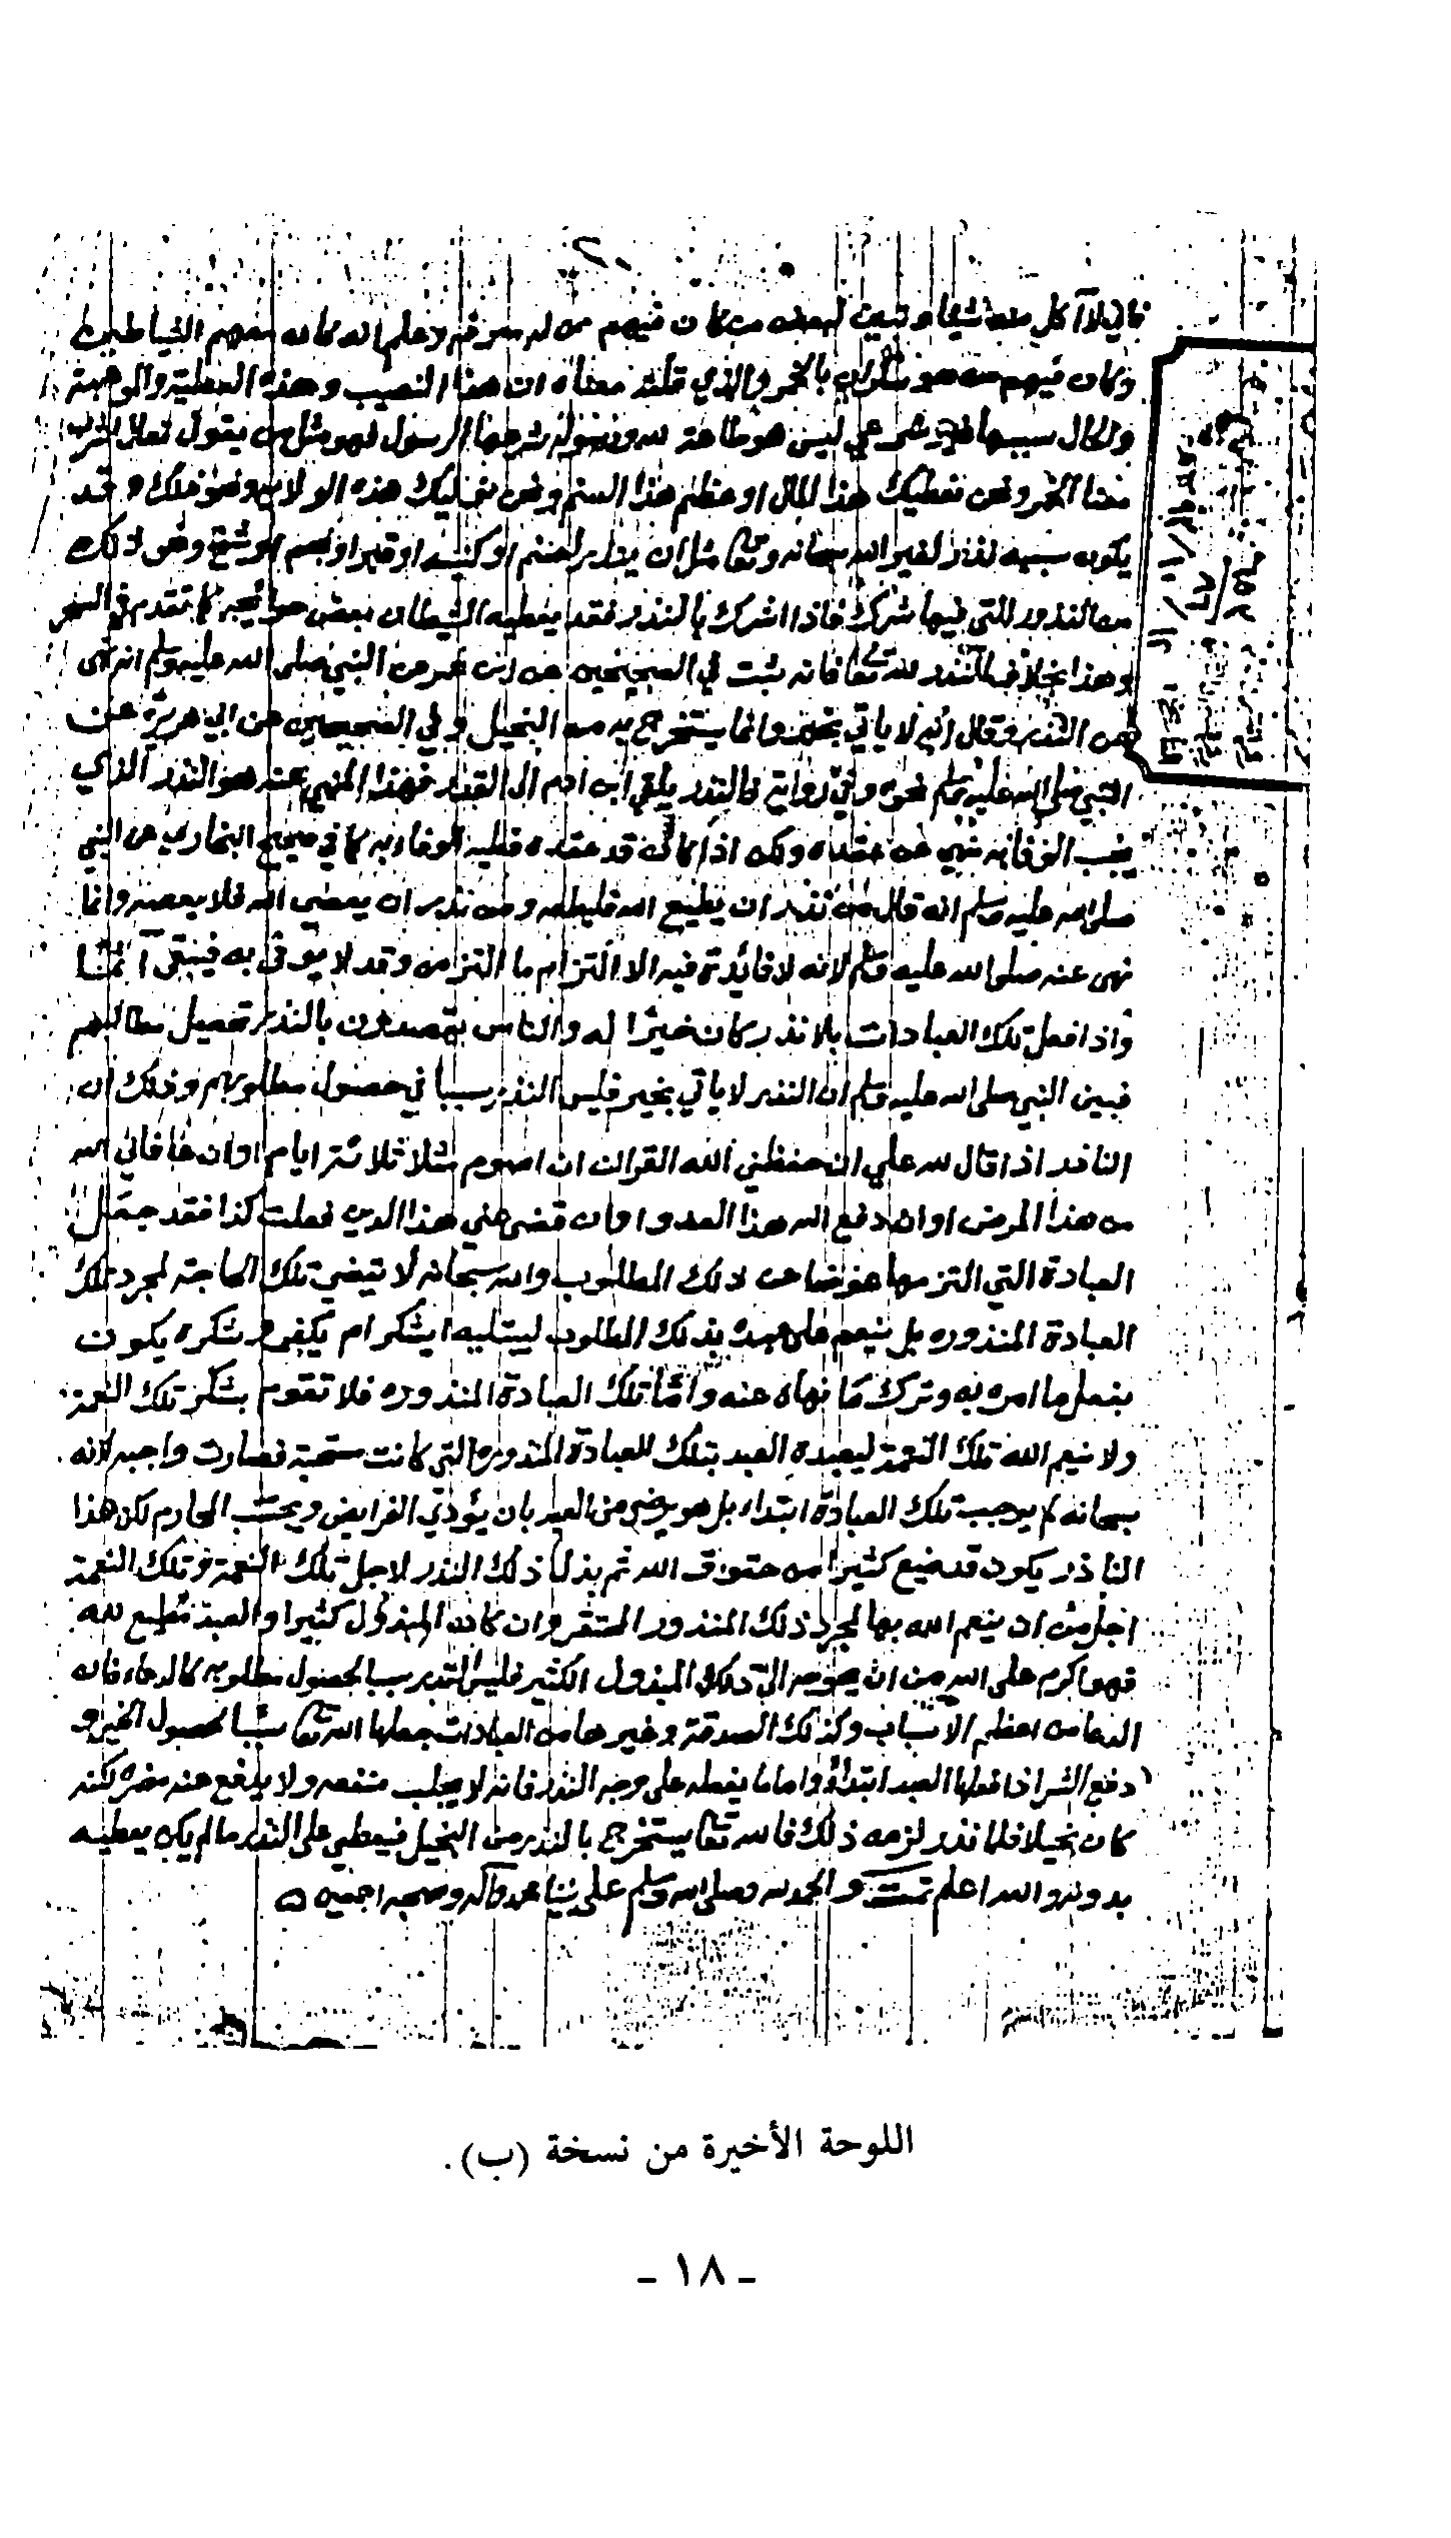 فاني لا آكل منه شيئا وتبين لبعض من كان فيهم من لم يعرف وعلم انه كان معهم الشياطين
وكان فيهم من هو سكران بالخمر والذي قلته معناه ان هذا النصيب وهذه العطية والموهبة
سببها شرعي ليس هو طاعة لله ورسوله شرعها الرسول فهو مثل من يقول تعال اشرب
معنا الخمر ونحن نعطيك هذا المال او عظم هذا الصنم ونحن نوليك هذه الولاية ونحو ذلك وقد
يكون سببه نذر لغير الله سبحانه وتعا مثل ان ينذر لصنم او كنيسه او قبر او نجم او شيخ ونحو ذلك
من النذور التي فيها شرك فاذا اشرك بالنذر فقد يعطيه الشيطان بعض حوائجه كما تقدم في السحر
وهذا بخلاف النذر لله تعا فانه ثبت في الصحيحين عن ابن عمر عن النبي صلى الله عليه وسلم انه نهى
عن النذر وقال انه لا ياتي بخير وانما يستخرج به من البخيل وفي الصحيحين عن ابي هريرة عن
النبي صلى الله عليه وسلم نحوه وفي رواية فالنذر يلقي ابن ادم الى القدر فهذا المنهي عنه هو النذر الذي
يجب الوفا به منهي عن عقده ولكن اذا كان قد عقده فعليه الوفاء به كما في صحيح البخاري عن النبي
صلى الله عليه وسلم انه قال من نذر ان يطيع الله فليطعه ومن نذر ان يعصي الله فلا يعصه وانما
نهى عنه صلى الله عليه وسلم لانه لا فائدة فيه الا التزام ما التزمه وقد لا يوفى به فيبقى آثما
واذا فعل تلك العبادات بلا نذر كان خيرا له والناس يقصدون بالنذر تحصيل مطالبهم
فبين النبي صلى الله عليه وسلم ان النذر لا ياتي بخير فليس النذر سببا في حصول مطلوبهم وذلك ان
الناذر اذا قال لله علي ان حفظني الله القران ان اصوم مثلا ثلاثة ايام او ان عافاني الله
من هذا المرض او ان دفع الله هذا العدو او ان قضى عني هذا الدين فعلت كذا فقد جعل
العبادة التي التزمها عوضا عن ذلك المطلوب والله سبحانه لا يقضي تلك الحاجة لمجرد تلك
العبادة المنذوره بل ينعم على عبده بذلك المطلوب ليبتليه ايشكر ام يكفر وشكره يكون
بفعل ما امره به وترك ما نهاه عنه وأما تلك العبادة المنذوره فلا تقوم بشكر تلك النعمة
ولا ينعم الله تلك النعمة ليعبده العبد بتلك العبادة المنذوره التي كانت مستحبة فصارت واجبه لانه
سبحانه لم يوجب تلك العبادة ابتداء بل هو يرضى من العبد بان يؤدي الفرايض ويجتنب المحارم لكن هذا
الناذر يكون قد ضيع كثيرا من حقوق الله ثم بذل ذلك النذر لاجل تلك النعمة وتلك النعمة
اجل من ان ينعم الله بها لمجرد ذلك المنذور المحتقر وان كان المبذول كثيرا والعبد مطيع لله
فهو اكرم على الله من ان يحوجه الى ذلك المبذول الكثير فليس النذر سببا لحصول مطلوبه كالدعاء فانه
الدعا من اعظم الاسباب وكذلك الصدقة وغيرها من العبادات جعلها الله تعا سببا لحصول الخير و
دفع الشر اذا فعلها العبد ابتداءً واما ما يفعله على وجه النذر فانه لا يجلب منفعه ولا يدفع عنه مضره لكنه
كان بخيلا فلما نذر لزمه ذلك فالله تعا يستخرج بالنذر من البخيل فيعطي على النذر ما لم يكن يعطيه
بدونه والله اعلم تمت والحمد لله وصلى الله وسلم على نبينا محمد وآله وصحبه اجمعين
اللوحة الأخيرة من نسخة (ب).
- ١٨ -